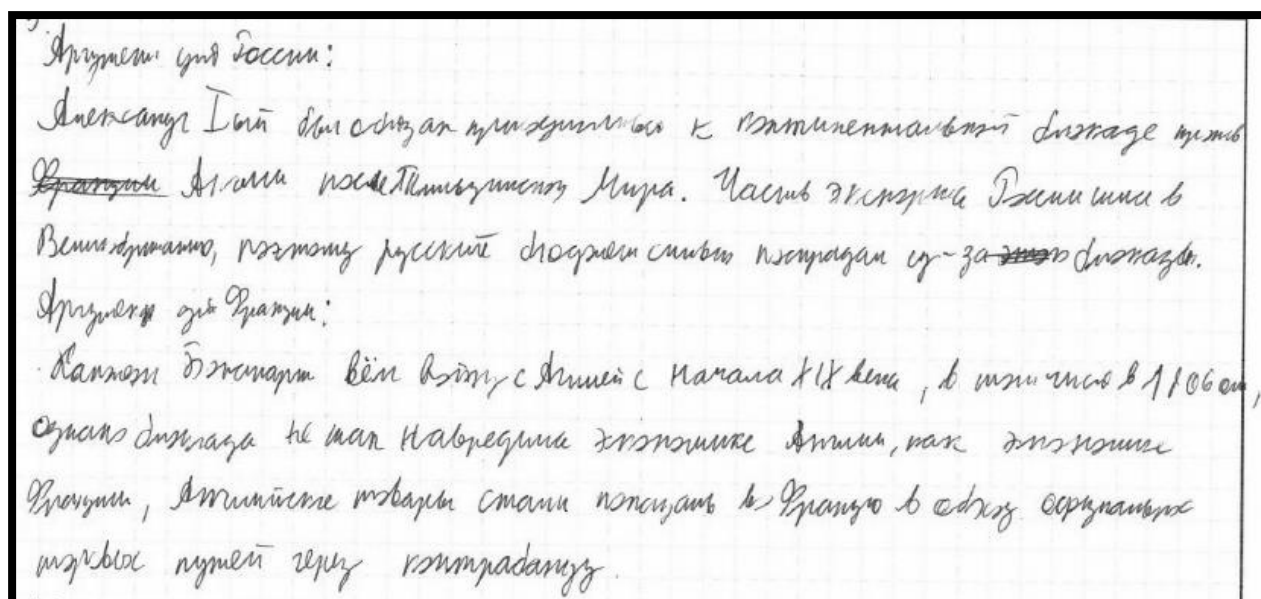 Аргумент для России:
Александр I ый был обязан присоединиться к континентальной блокаде против
Франции Англии после Тильзитского Мира. Часть экспорта России шла в
Великобританию, поэтому русский бюджет сильно пострадал из-за блокады.
Аргумент для Франции:
Наполеон Бонапарт вёл войну с Англией с начала XIX века, в том числе в 1806 ом,
однако блокада не так навредила экономике Англии, как экономике
Франции, Английские товары стали попадать во Францию в обход официальных
торговых путей через контрабанду.